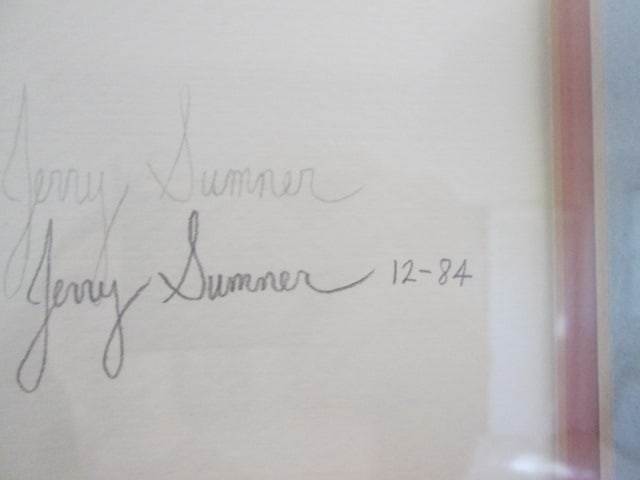 Jerry Sumner
Jerry Sumner 12-84